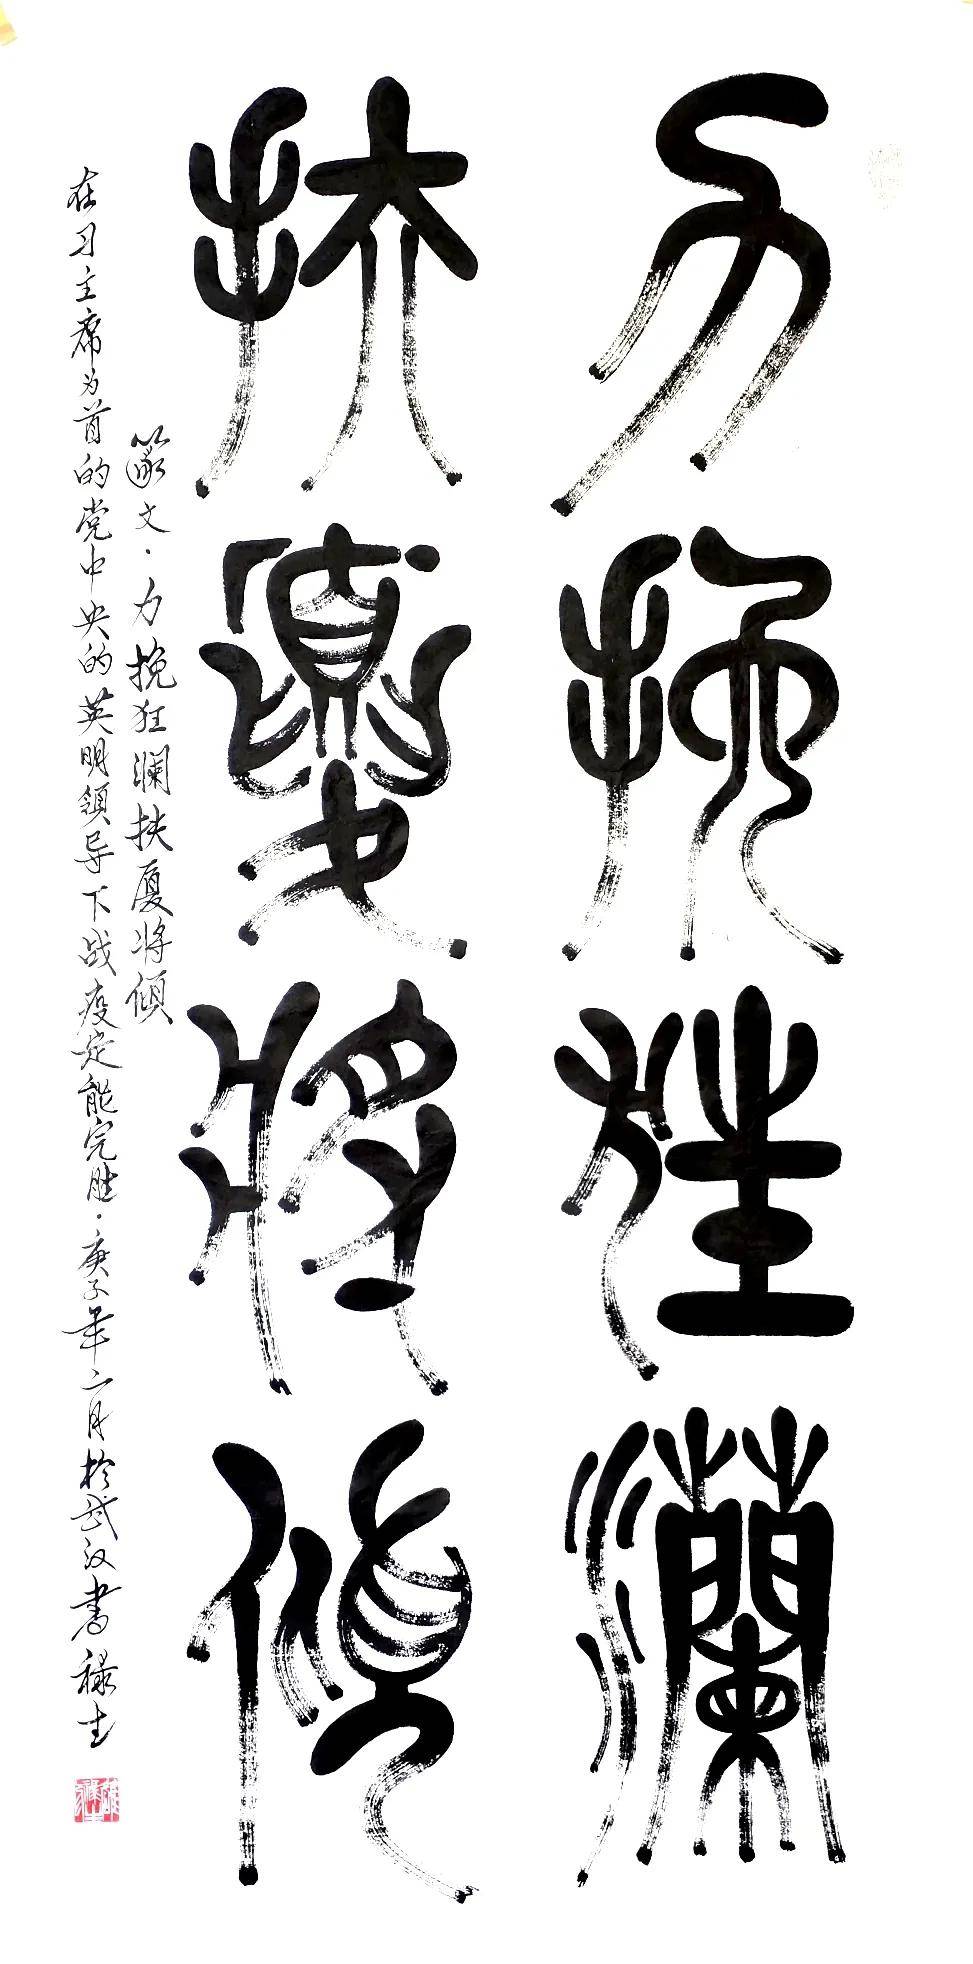 力挽狂澜
扶厦将倾
篆文·力挽狂澜扶厦将倾
在习主席为首的党中央的英明领导下战疫定能完胜·庚子年二月於武汉书禄生